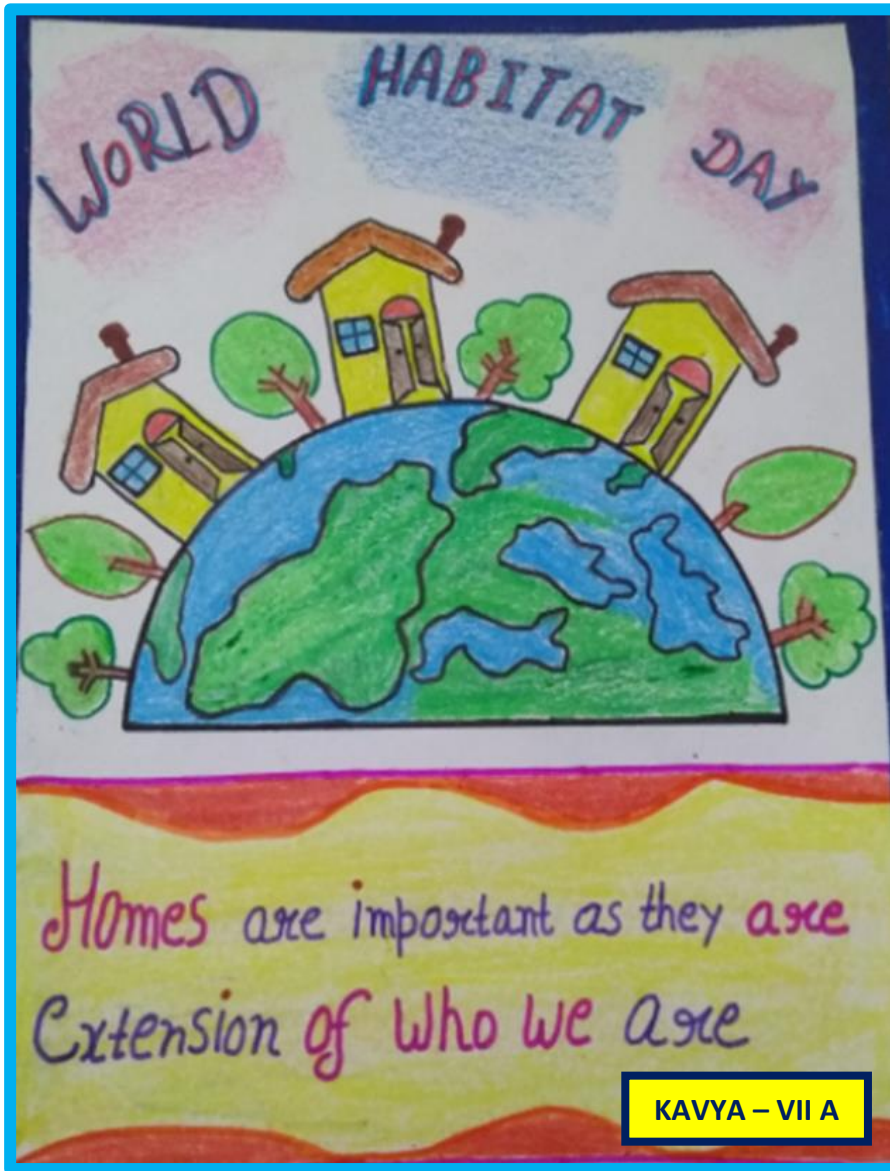 WORLD HABITAT DAY
Homes are important as they are
Extension of Who We are
KAVYA – VII A